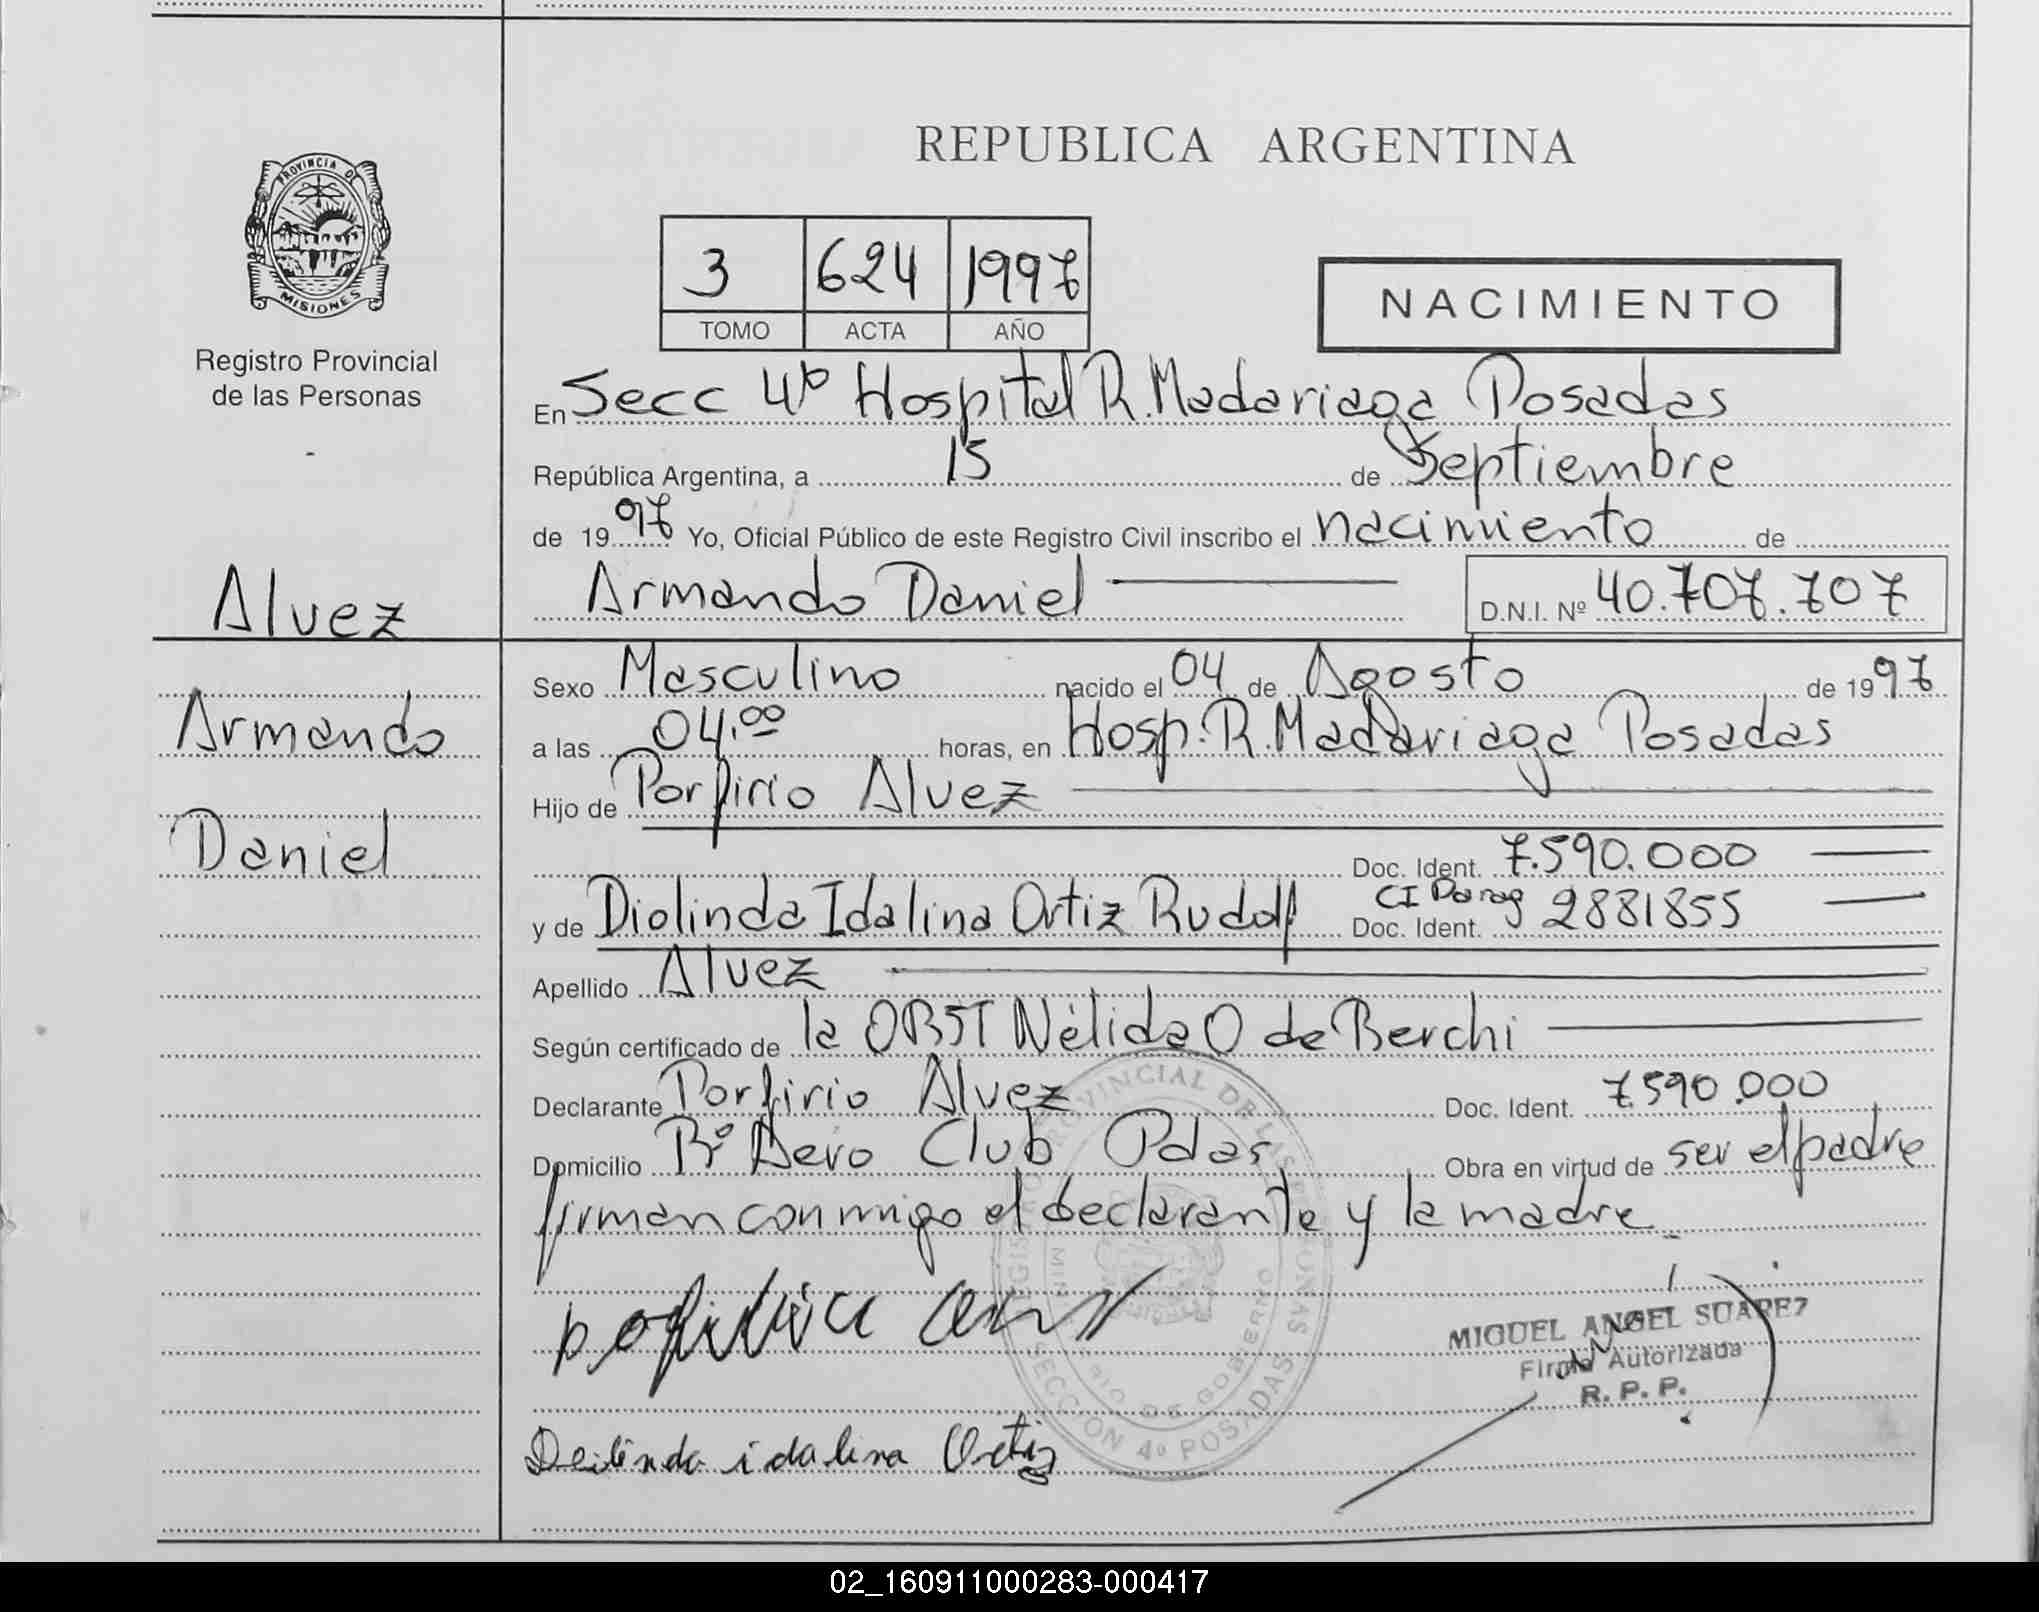 REPUBLICA ARGENTINA
PROVINCIA DE
MISIONES
Registro Provincial
de las Personas
3 624 1997
TOMO ACTA AÑO
NACIMIENTO
En Secc 4º Hospital R. Madariaga Posadas
República Argentina, a 15 de Septiembre
de 1997 Yo, Oficial Público de este Registro Civil inscribo el nacimiento de
Armando Daniel D.N.I. Nº 40.707.707
Alvez
Armando
Daniel
Sexo Masculino nacido el 04 de Agosto de 1997
a las 04,00 horas, en Hosp. R. Madariaga Posadas
Hijo de Porfirio Alvez
Doc. Ident. 7.590.000
y de Diolinda Idalina Ortiz Rudolf Doc. Ident. CI Parag 2881855
Apellido Alvez
Según certificado de la OBST Nélida O de Berchi
Declarante Porfirio Alvez Doc. Ident. 7.590.000
Domicilio Bº Aero Club Pdas Obra en virtud de ser el padre
firman conmigo el declarante y la madre
MIGUEL ANGEL SUAREZ
Firma Autorizada
R. P. P.
Deilinda idalina Ortiz
REGISTRO PROVINCIAL DE LAS PERSONAS
SECCION 4º POSADAS
MINISTERIO DE GOBIERNO
02_160911000283-000417